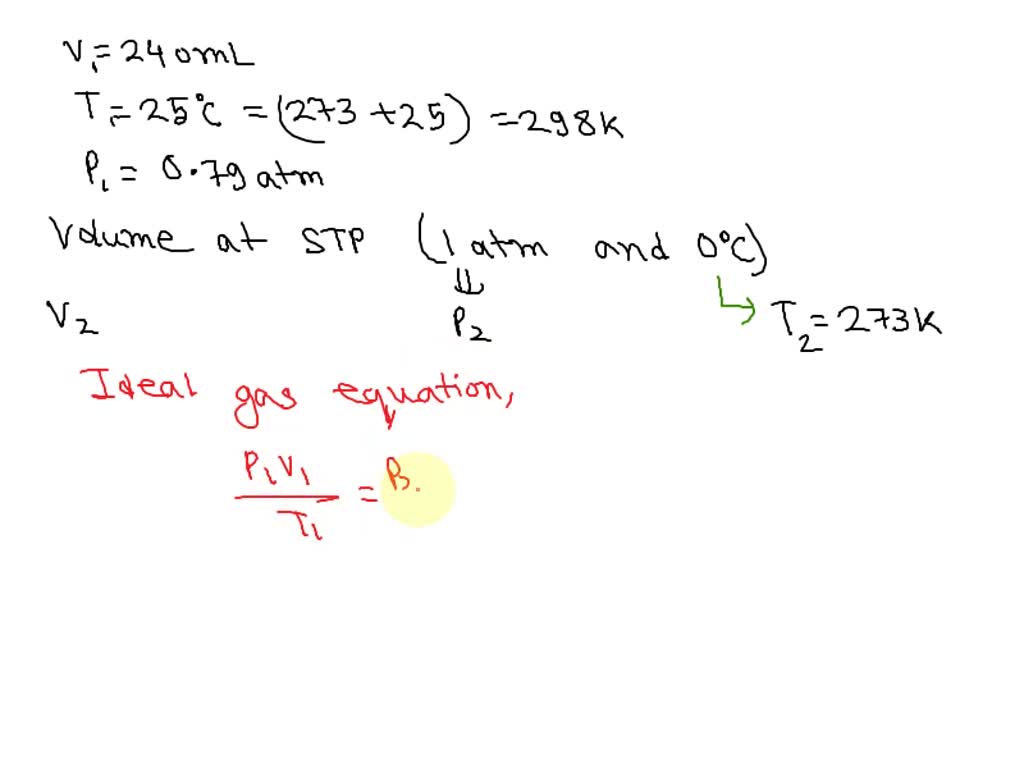 V₁ = 240mL
T₁ = 25°C = (273 + 25) = 298K
P₁ = 0.79 atm
Volume at STP (1 atm and 0°C)
⇓
V₂ P₂ T₂ = 273K
Ideal gas equation,
P₁V₁ / T₁ = P₂